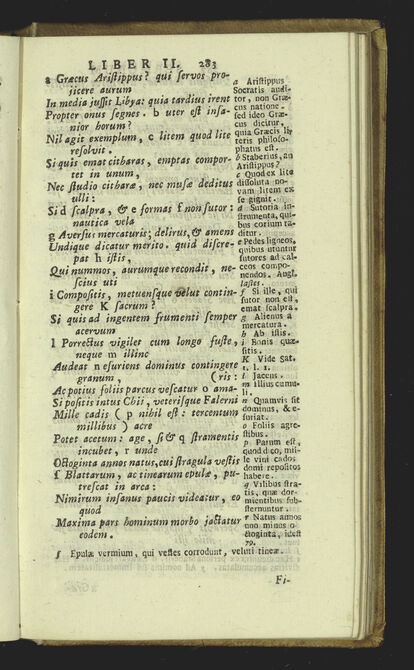 LIBER II. 283
a Græcus Aristippus? qui servos pro-
jicere aurum
In media jussit Libya: quia tardius irent
Propter onus segnes. b uter est insa-
nior horum?
Nil agit exemplum, c litem quod lite
resolvit.
Si quis emat citharas, emptas compor-
tet in unum,
Nec studio citharæ, nec musæ deditus
ulli:
Si d scalpra, & e formas f non sutor:
nautica vela
g Aversus mercaturis; delirus, & amens
Undique dicatur merito. quid discre-
pat h istis,
Qui nummos, aurumque recondit, ne-
scius uti
i Compositis, metuensque velut contin-
gere K sacrum?
Si quis ad ingentem frumenti semper
acervum
l Porrectus vigilet cum longo fuste,
neque m illinc
Audeat n esuriens dominus contingere
granum, (ris:
Ac potius foliis parcus vescatur o ama-
Si positis intus Chii, veterisque Falerni
Mille cadis ( p nihil est: tercentum
millibus) acre
Potet acetum: age, si & q stramentis
incubet, r unde
Octoginta annos natus, cui stragula vestis
ſ Blattarum, ac tinearum epulæ, pu-
trescat in arca:
Nimirum insanus paucis videatur, eo
quod
Maxima pars hominum morbo jactatur
eodem.
a Aristippus
Socratis audi-
tor, non Græ-
cus natione.
sed ideo Græ-
cus dicitur,
quia Græcis li-
teris philoso-
phatus est.
b Staberius, an
Aristippus?
c Quod ex lite
dissoluta no-
vam litem ex
se gignit.
d Sutoria in-
strumenta, qui-
bus corium ra-
ditur.
e Pedes ligneos,
quibus utuntur
sutores ad cal-
ceos compo-
nendos. Angl.
lastes.
f Si ille, qui
sutor non est,
emat scalpra.
g Alienus a
mercatura.
h Ab istis.
i Bonis quæ-
sitis.
K Vide Sat.
1. l. 1.
l Jacens.
m Illius cumu-
li.
n Quamvis sit
dominus, & e-
suriat.
o Foliis agre-
stibus.
p Parum est,
quod dico, mil-
le vini cados
domi repositos
habere.
q Vilibus stra-
tis, quæ dor-
mientibus sub-
sternuntur.
r Natus annos
uno minus o-
ctoginta, idest
79.
ſ Epulæ vermium, qui vestes corrodunt, veluti tineæ.
Fi-